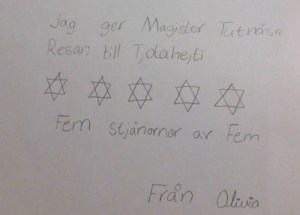 Jag ger Magister Tutnäsa
Resan till Tjotahejti
Fem stjänornor av Fem
Från Olivia